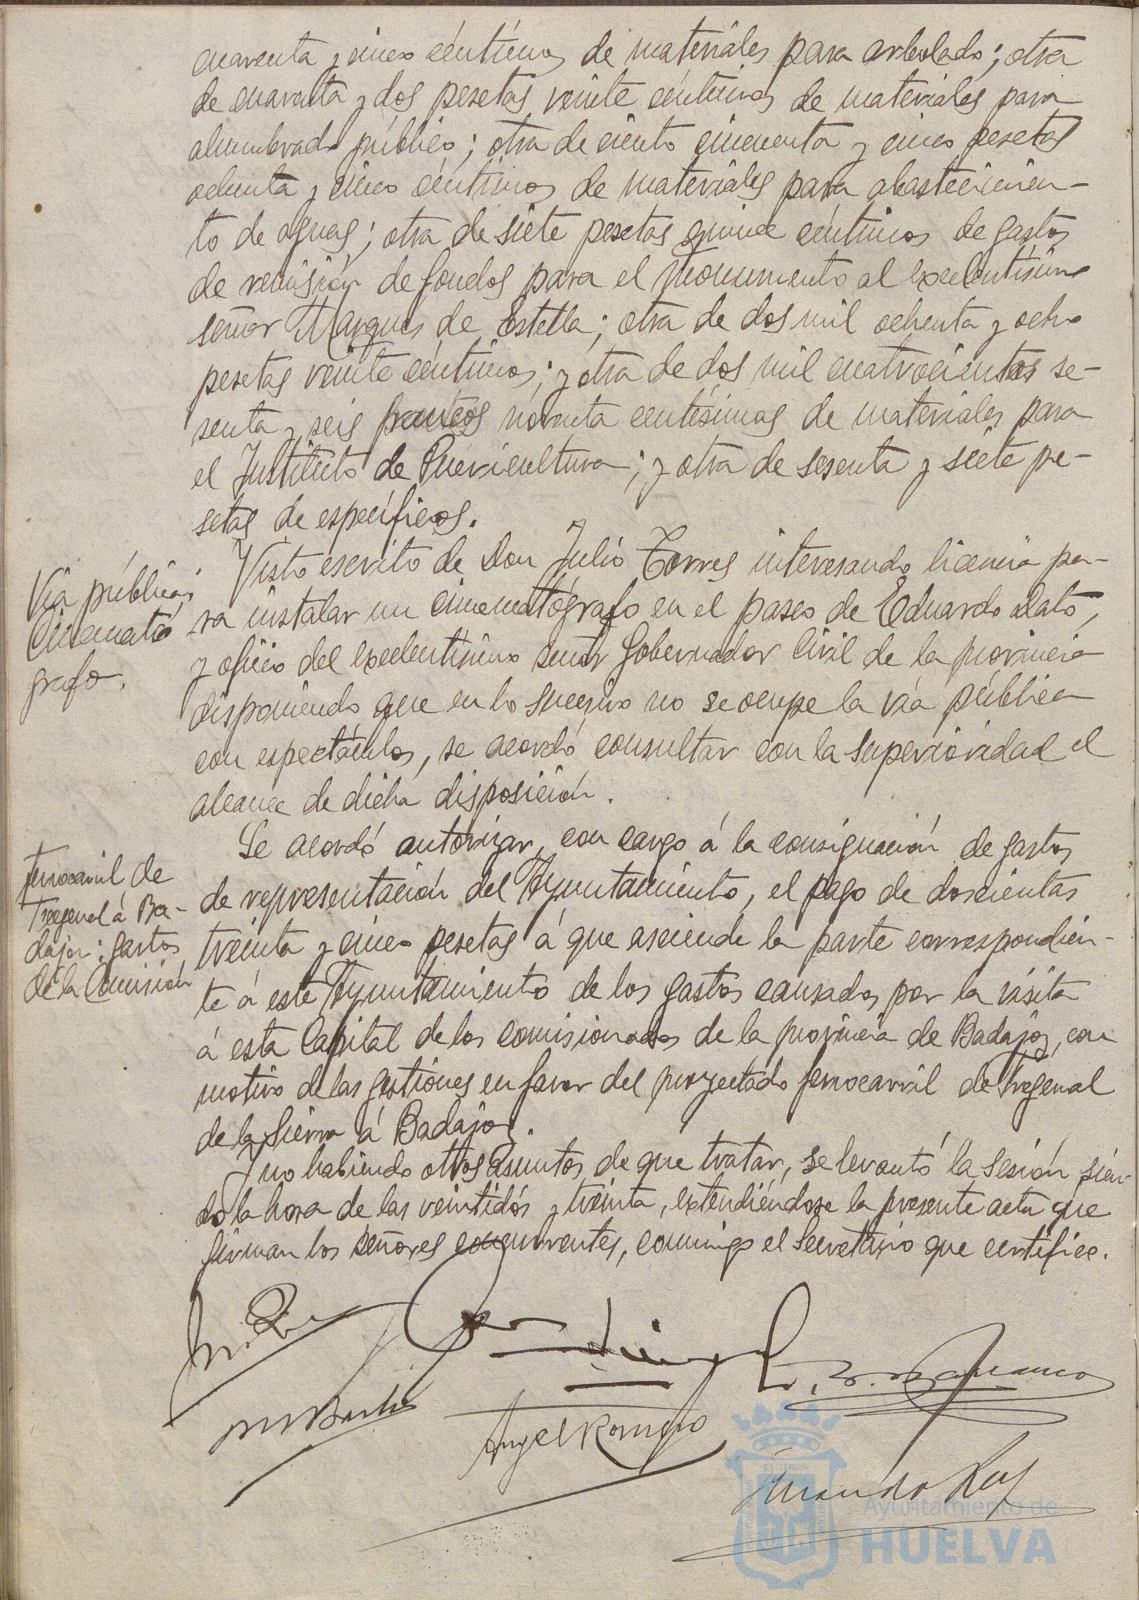 cuarenta y cinco céntimos de materiales para arbolado; otra
de cuarenta y dos pesetas veinte céntimos de materiales para
alumbrado público; otra de ciento cincuenta y cinco pesetas
ochenta y cinco céntimos de materiales para abastecimien-
to de aguas; otra de siete pesetas quince céntimos de gastos
de remisión de fondos para el Monumento al excelentísimo
señor Marqués de Estella; otra de dos mil ochenta y ocho
pesetas veinte céntimos; y otra de dos mil cuatrocientos se-
senta y seis francos noventa centésimas de materiales para
el Instituto de Puericultura; y otra de sesenta y siete pe-
setas de específicos.
Vía pública:
Cinemató
grafo.
Visto escrito de Don Julio Torres interesando licencia pa-
ra instalar un cinematógrafo en el paseo de Eduardo Dato,
y oficio del excelentísimo señor Gobernador Civil de la provincia
disponiendo que en lo sucesivo no se ocupe la vía pública
con espectáculos, se acordó consultar con la superioridad el
alcance de dicha disposición.
Ferrocarril de
Fregenal á Ba-
dajoz: gastos
de la Comisión
Se acordó autorizar, con cargo á la consignación de gastos
de representación del Ayuntamiento, el pago de doscientas
treinta y cinco pesetas á que asciende la parte correspondien-
te á este Ayuntamiento de los gastos causados por la visita
á esta Capital de los comisionados de la provincia de Badajoz, con
motivo de las gestiones en favor del proyectado ferrocarril de Fregenal
de la Sierra á Badajoz.
Y no habiendo otros asuntos de que tratar, se levantó la sesión sien-
do la hora de las veintidós y treinta, extendiéndose la presente acta que
firman los señores concurrentes, conmigo el Secretario que certifico.
Angel Romero
Ayuntamiento de
HUELVA